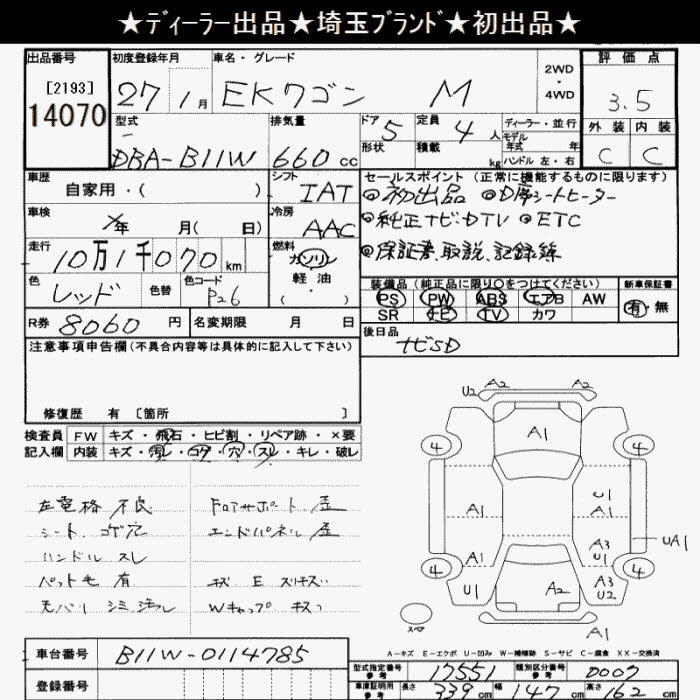 ★ディーラー出品★埼玉ブランド★初出品★
出品番号 初度登録年月 車名・グレード 2WD・4WD 評価点
[2193] 14070 27 1月 EKワゴン M 3.5
型式 排気量 ドア 5 定員 4人 ディーラー・並行 外装 内装
モデル年式 年
DBA-B11W 660cc 形状 積載 kg ハンドル 左・右 C C
車歴 シフト IAT セールスポイント(正常に機能するものに限ります)
自家用・( ) ◎初出品 ◎D席シートヒーター
車検 年 月( 日) 冷房 AAC ◎純正ナビ・DTV ◎ETC
走行 10万1千070km 燃料 ガソリン ◎保証書、取説、記録簿
軽油
・( )
色 レッド 色替 色コード P26 装備品(純正品に限り○をつけてください) 新車保証書
PS PW ABS エアB AW 有・無
SR ナビ TV カワ
R券 8060円 名変期限 月 日 後日品
ナビSD
注意事項申告欄(不具合内容等は具体的に記入して下さい)
修復歴 有 〔箇所 〕
検査員 FW キズ・飛石・ヒビ割・リペア跡・×要
記入欄 内装 キズ・汚レ・コゲ・穴・スレ・キレ・破レ
左電格 不良 Fロアサポート 歪
シート コゲ穴 エンドパネル 歪
ハンドル スレ
ペット毛 有
天バリ シミ 汚レ Wキャップ キズ
U2 A2 A2
A1
4 4
U1
A1 A1
UA1
A1 A3
U1
4 4
U1 A2 A3
U2
スペア
A1
A-キズ E-エクボ U-凹み W-補修跡 S-サビ C-腐食 XX-交換済
車台番号 B11W-0114785
登録番号
型式指定番号 参考 17551 類別区分番号 参考 0007
車庫証明用 参考 長さ 339cm 幅 147cm 高さ 162cm